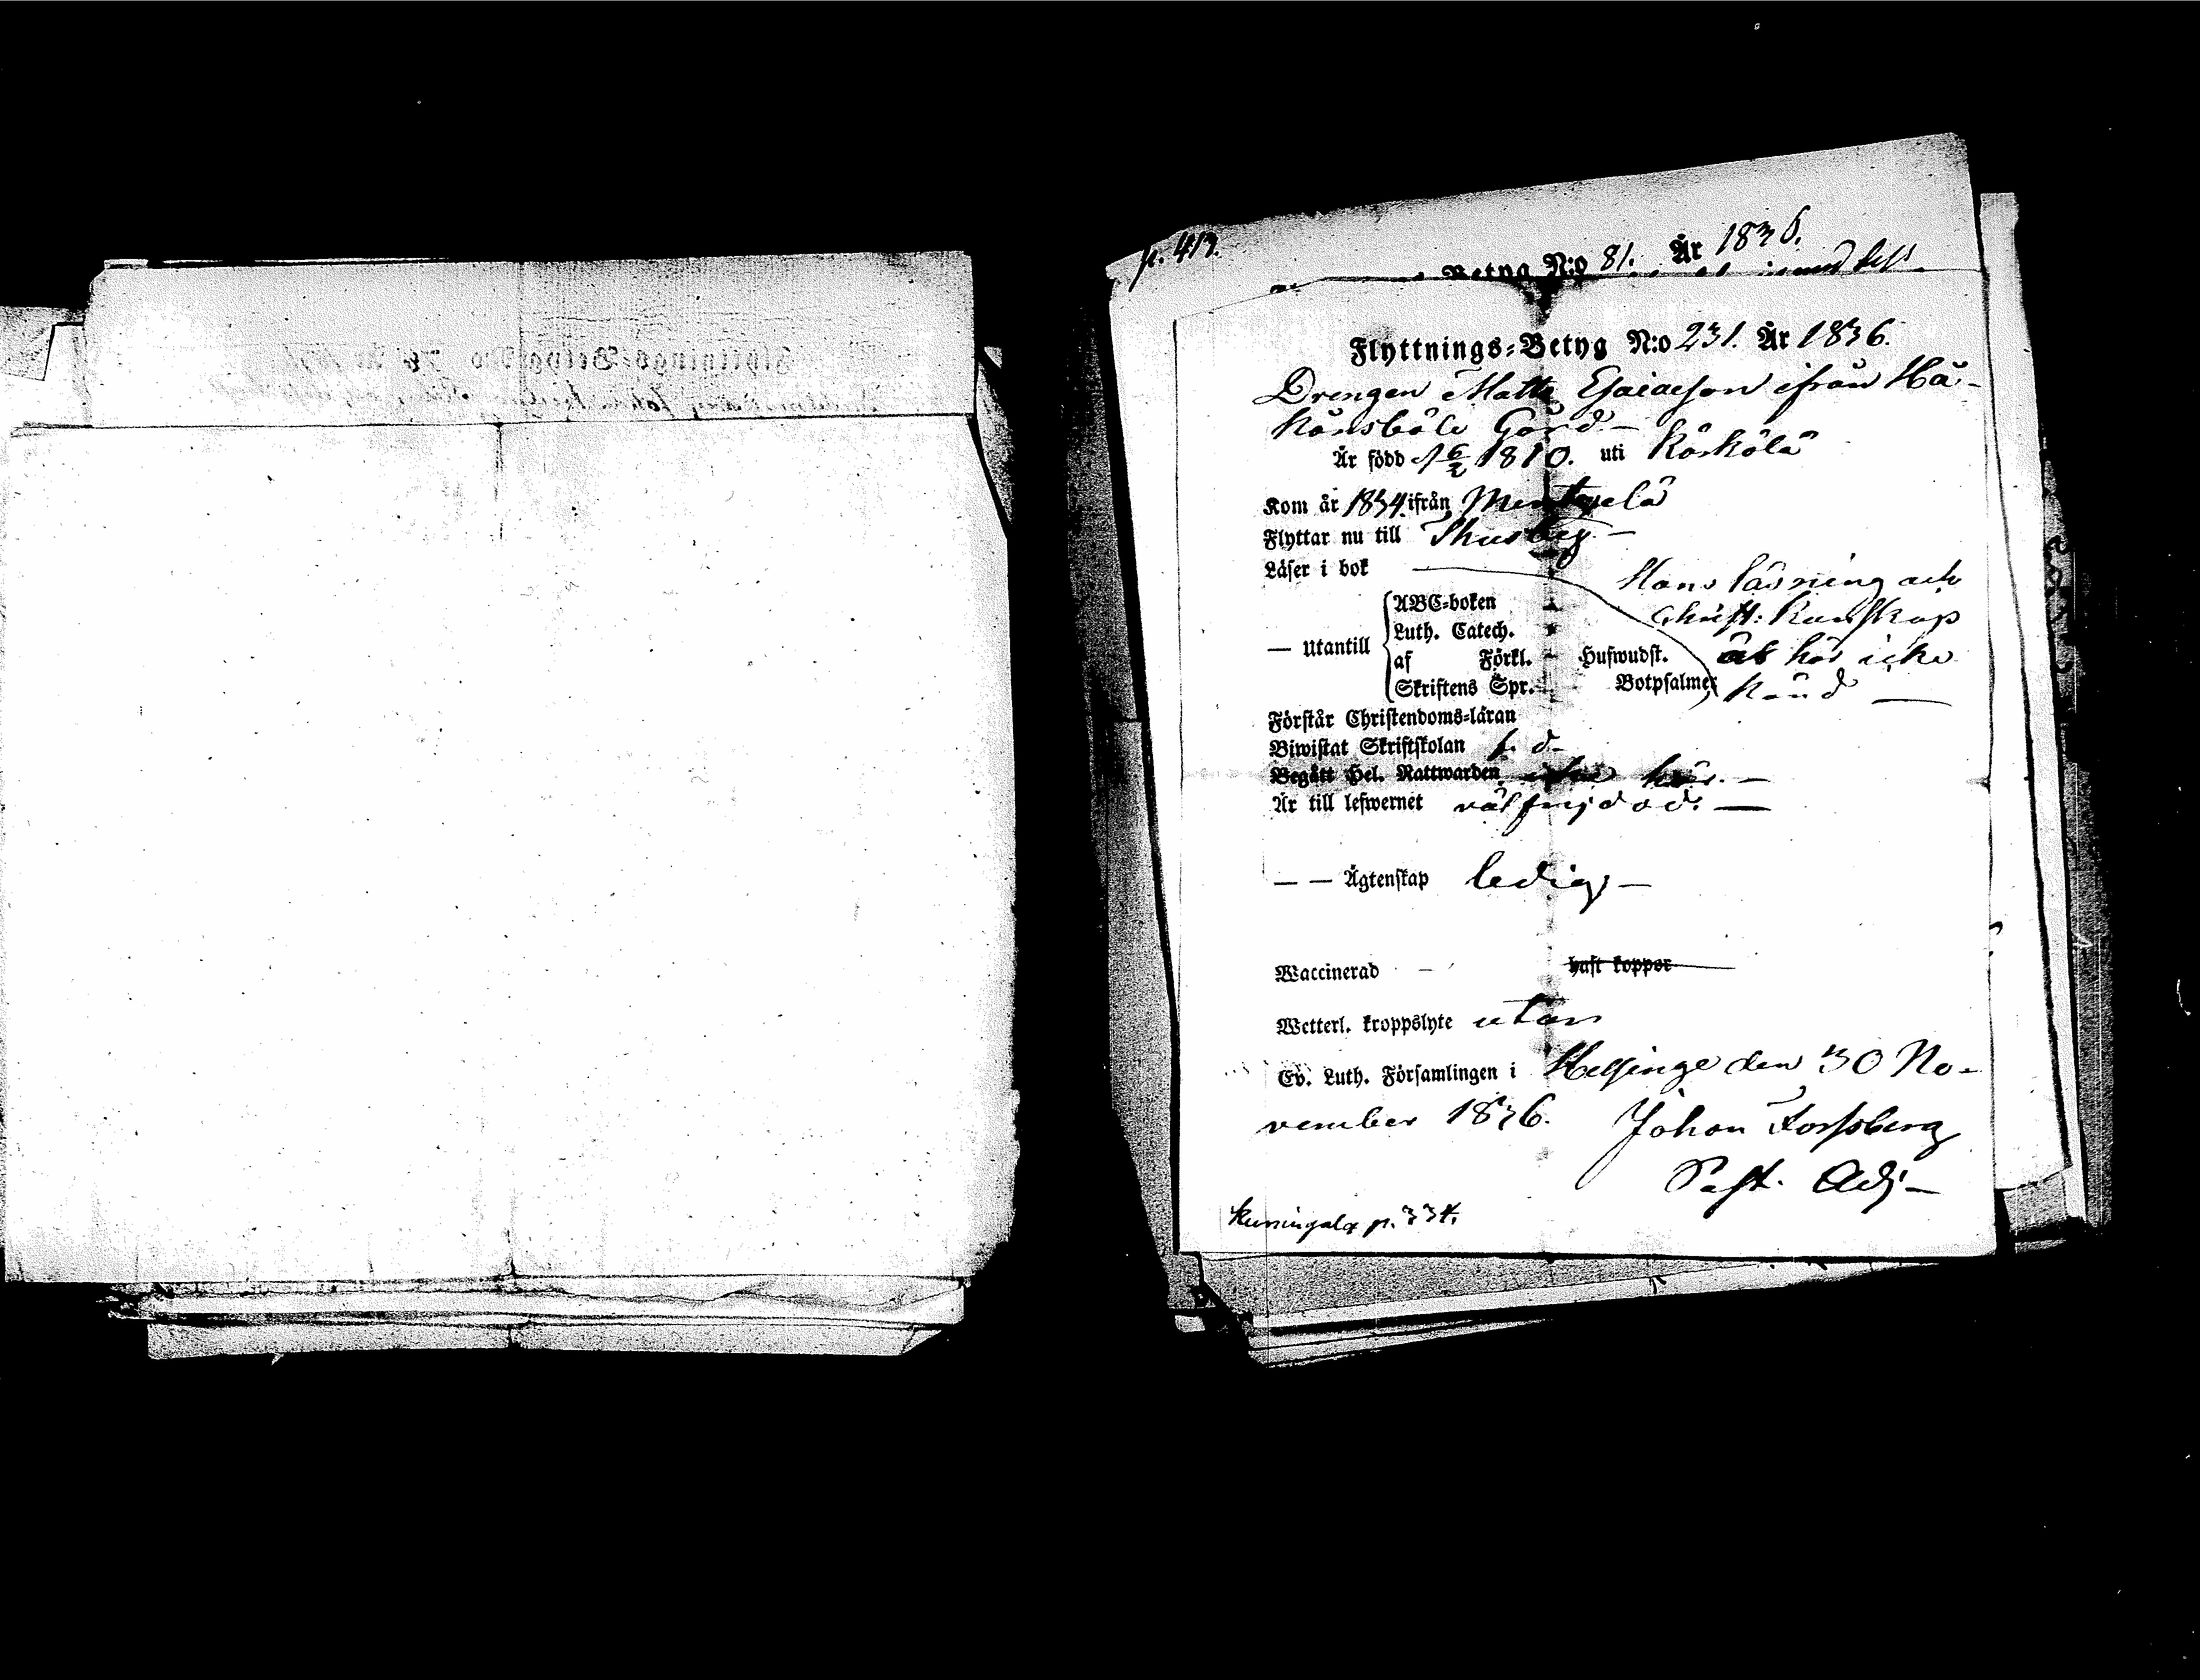 p. 413.
Betyg N:o 81. År 1836.
Flyttnings-Betyg N:o 231. År 1836.
Drengen Matts Esaiaeson ifrån Hå-
känsböle Gård -
Är född d 6/2 1810. uti Koskÿlä
Kom år 1834. ifrån Mentzelä
Flyttar nu till Thusby -
Läser i bok
Hans läsning och
ABC-boken
Christ: Kunskap
Luth. Catech.
— Utantill
af Förkl. - Hufwudst. är här icke
Skriftens Spr. Botpsalmer känd —
Förstår Christendoms-läran
Biwistat Skriftskolan
Begått Hel. Nattwarden icke här. —
Är till lefwernet välfrejdad. —
— — Ägtenskap ledig —
Waccinerad - haft koppor
Wetterl. kroppslyte utan
Ev. Luth. Församlingen i Helsinge den 30 No-
vember 1836. Johan Forssberg
Past. Adj -
p. 334.